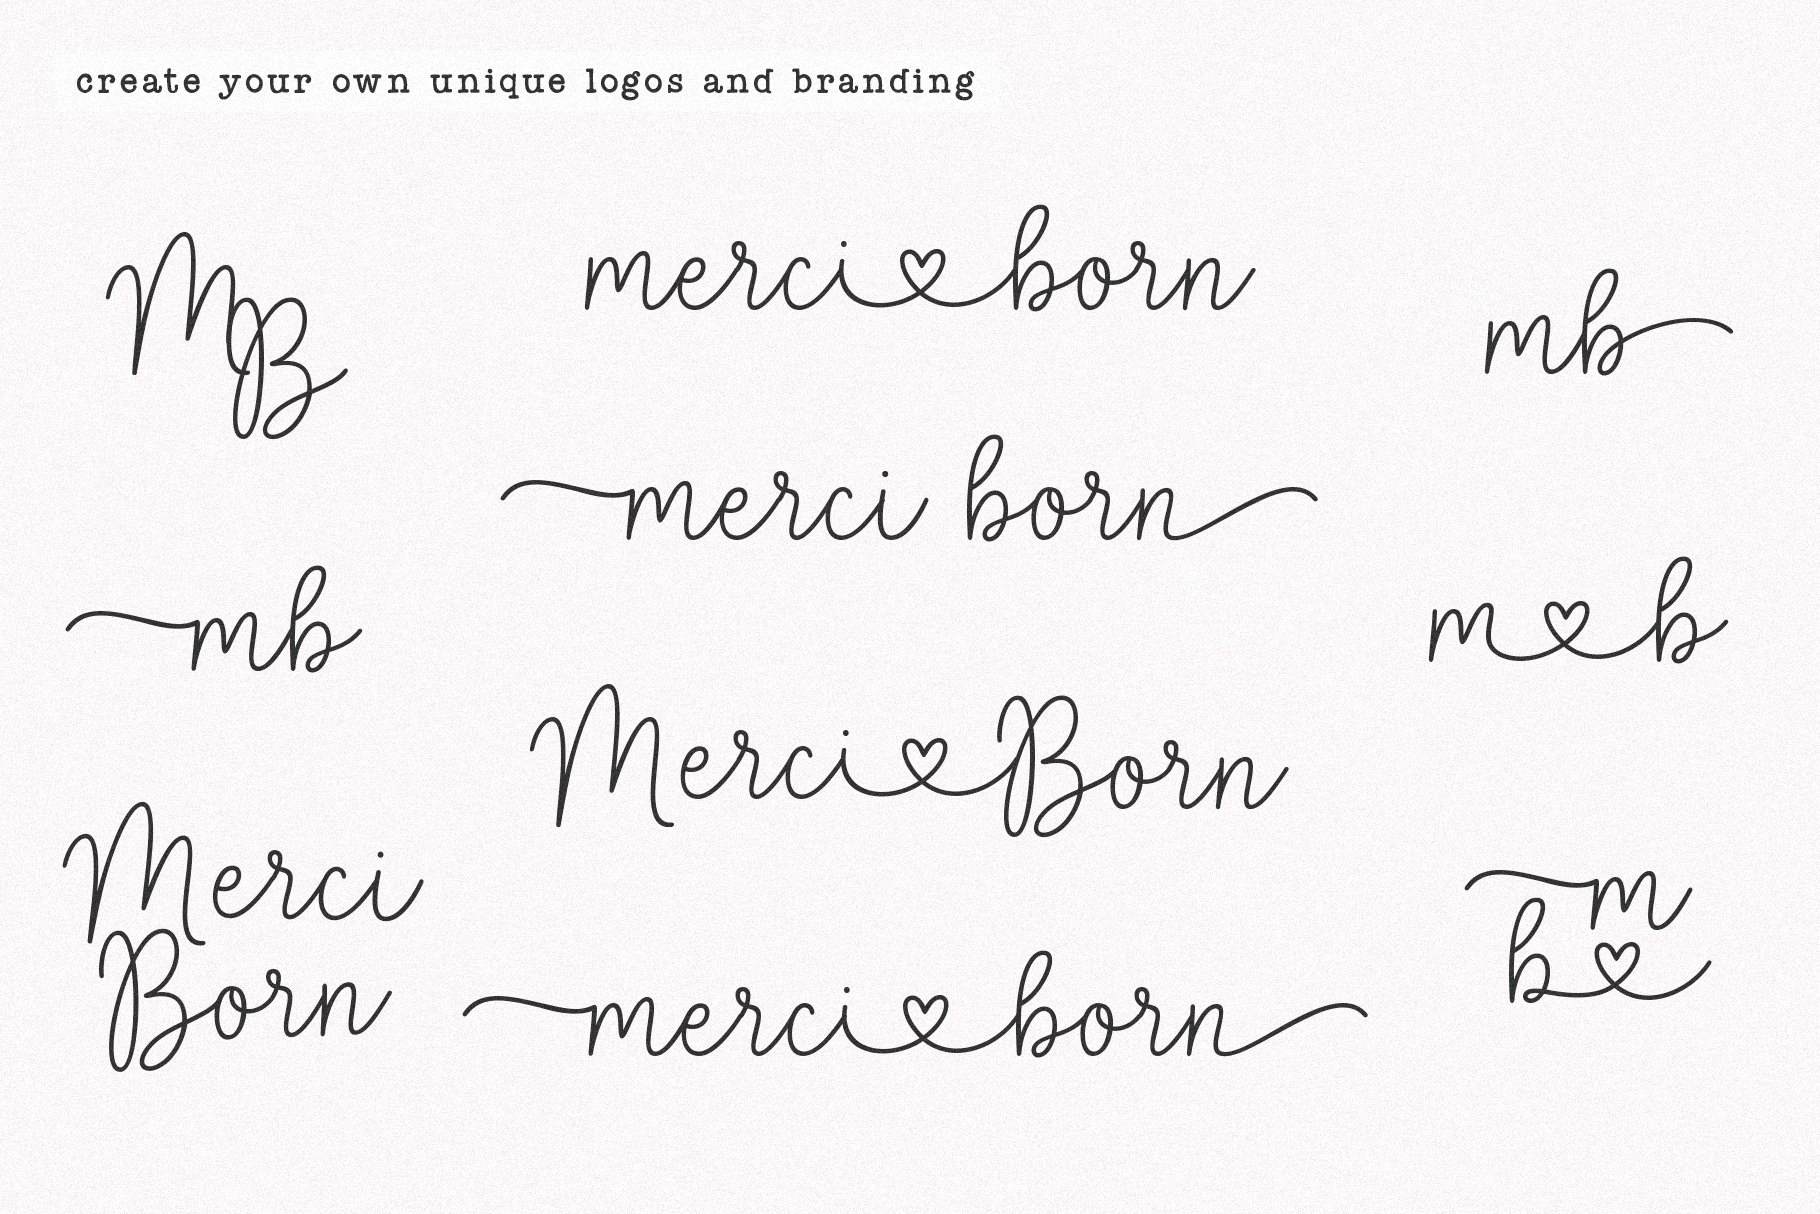 create your own unique logos and branding
MB
merci born
mb
merci born
mb
m b
Merci Born
Merci
Born
m
b
merci born